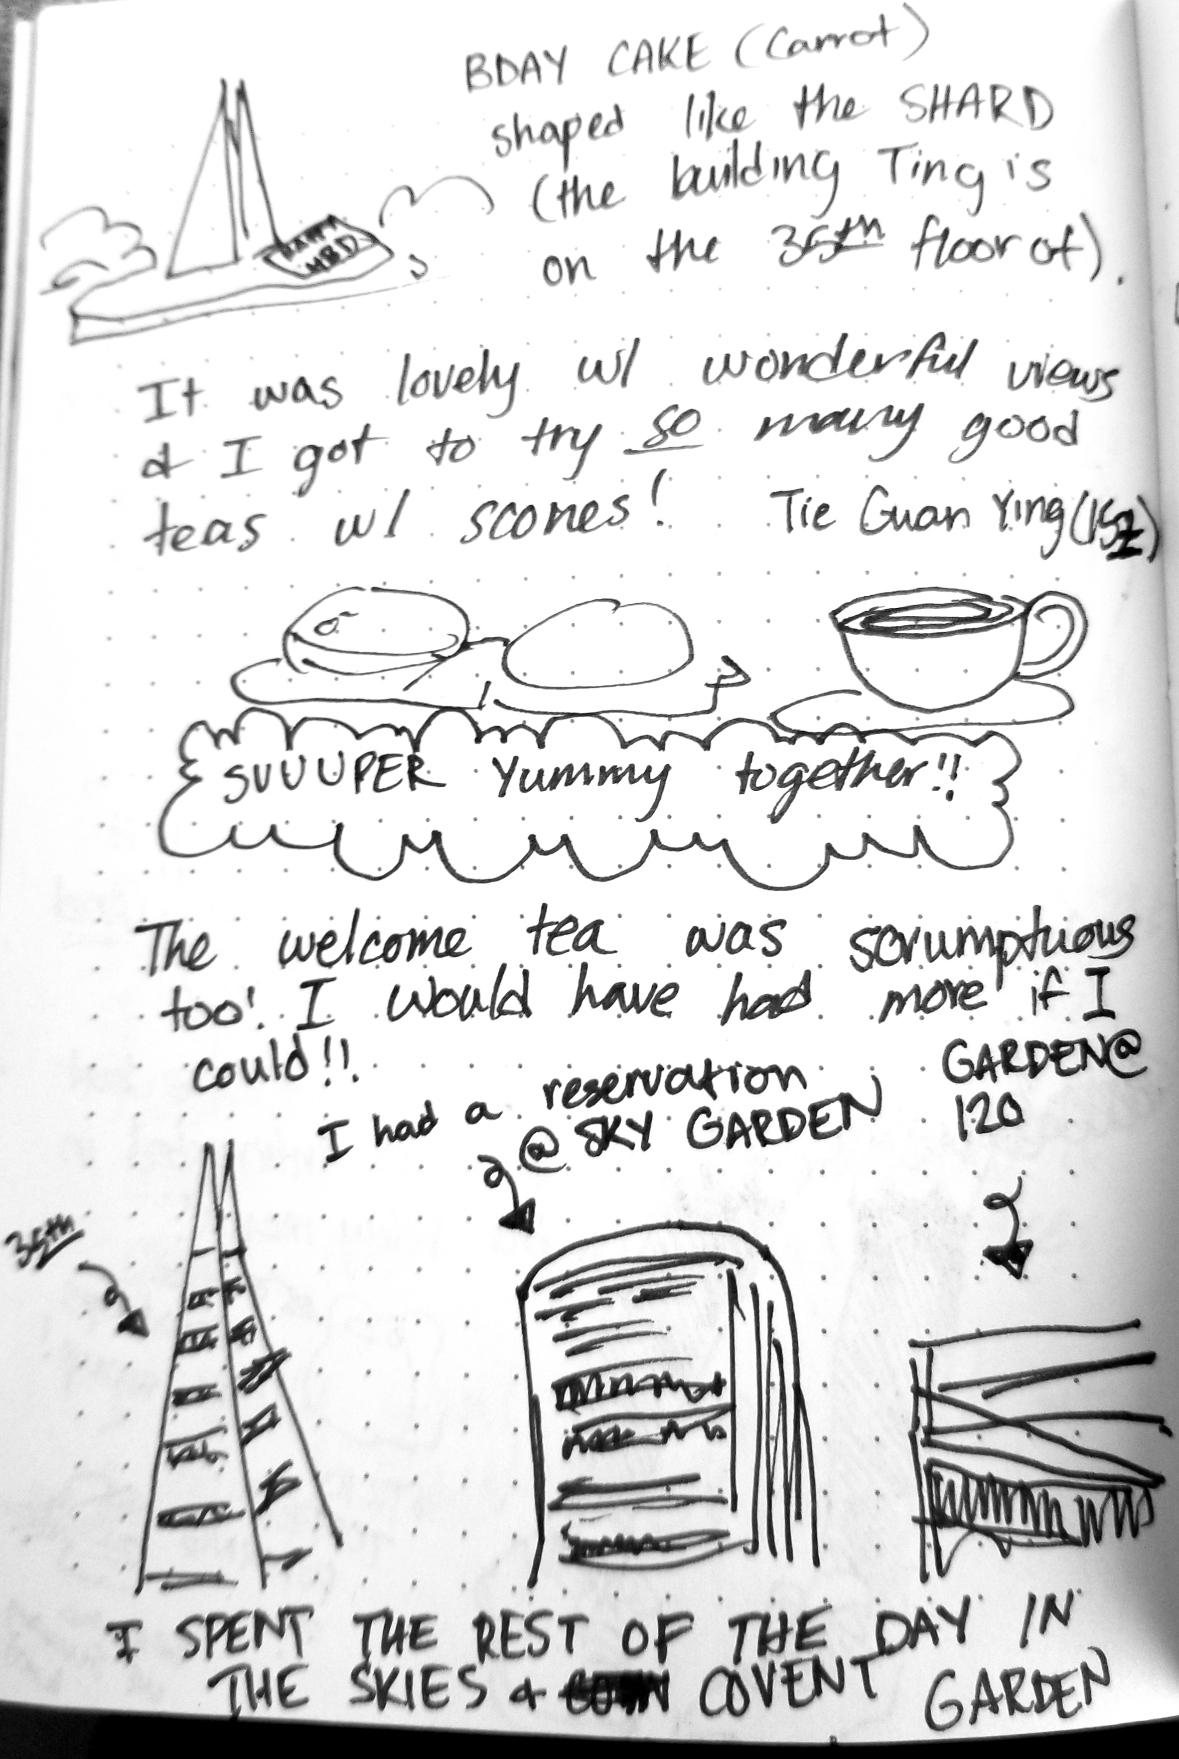 BDAY CAKE (Carrot)
shaped like the SHARD
(the building Ting is
on the 35th floor of).
HBD
It was lovely w/ wonderful views
& I got to try so many good
teas w/ scones! Tie Guan Ying
SUUUPER Yummy together!!
The welcome tea was scrumptuous
too! I would have had more if I
could!!
I had a reservation
@ SKY GARDEN
GARDEN@
120
35th
I SPENT THE REST OF THE DAY IN
THE SKIES & COVENT GARDEN